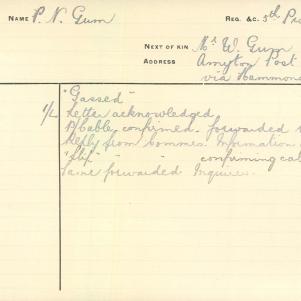 NAME P. N. Gum REG. &C. 5th Pio
NEXT OF KIN Mr W. Gum
ADDRESS Amyton Post
via Hammon
"Gassed"
Letter acknowledged
Cable confirmed. forwarded
Reply from Commdt. Information
" - - confirming cal
Same forwarded Inquirer.